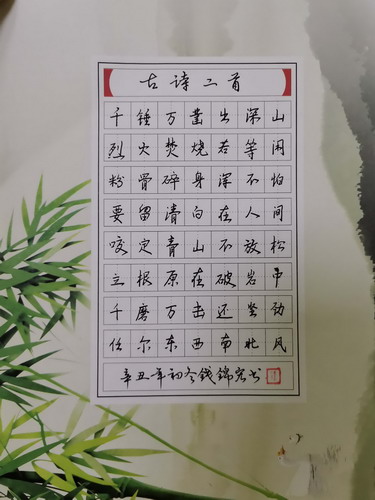 古诗二首
千锤万凿出深山
烈火焚烧若等闲
粉骨碎身浑不怕
要留清白在人间
咬定青山不放松
立根原在破岩中
千磨万击还坚劲
任尔东西南北风
辛丑年初冬钱锦宏书